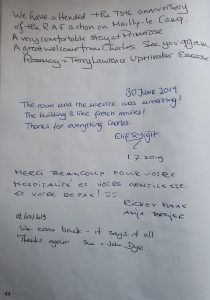 We have attended the 75th anniversary
of the RAF action on Mailly-le-Camp.
A very comfortable stay at Primrose
A great welcome from Charles. See you again
Rosemary + Terry Lawrence Upminster Essex
30 June 2019
The room and the service was amazing!
The building is like french movies!
Thanks for everything Charles
1.7.2019
MERCI BEAUCOUP POUR VOTRE
HOSPITALITE ET VOTRE GENTILESSE
ET VOTRE REPAS!
RICKEY HAAS
02/07/2019
We came back - it says it all
Thanks again Sue + John Dye.
44